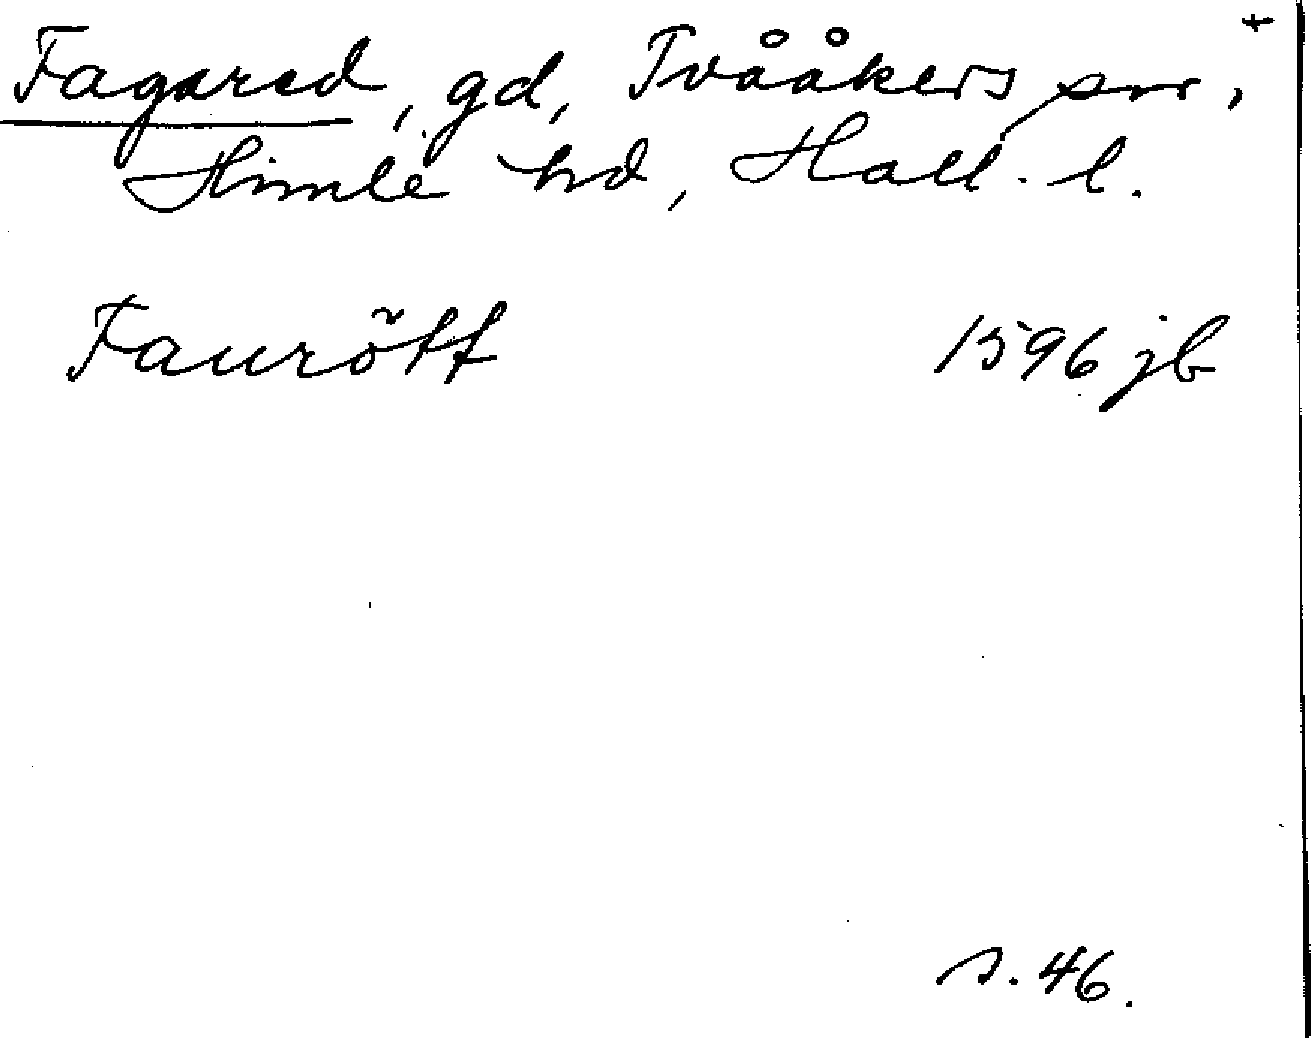 Fagared, gd, Tvååkers snr,
Himle hd, Hall. l.
Faurött 1596 jb
s. 46.